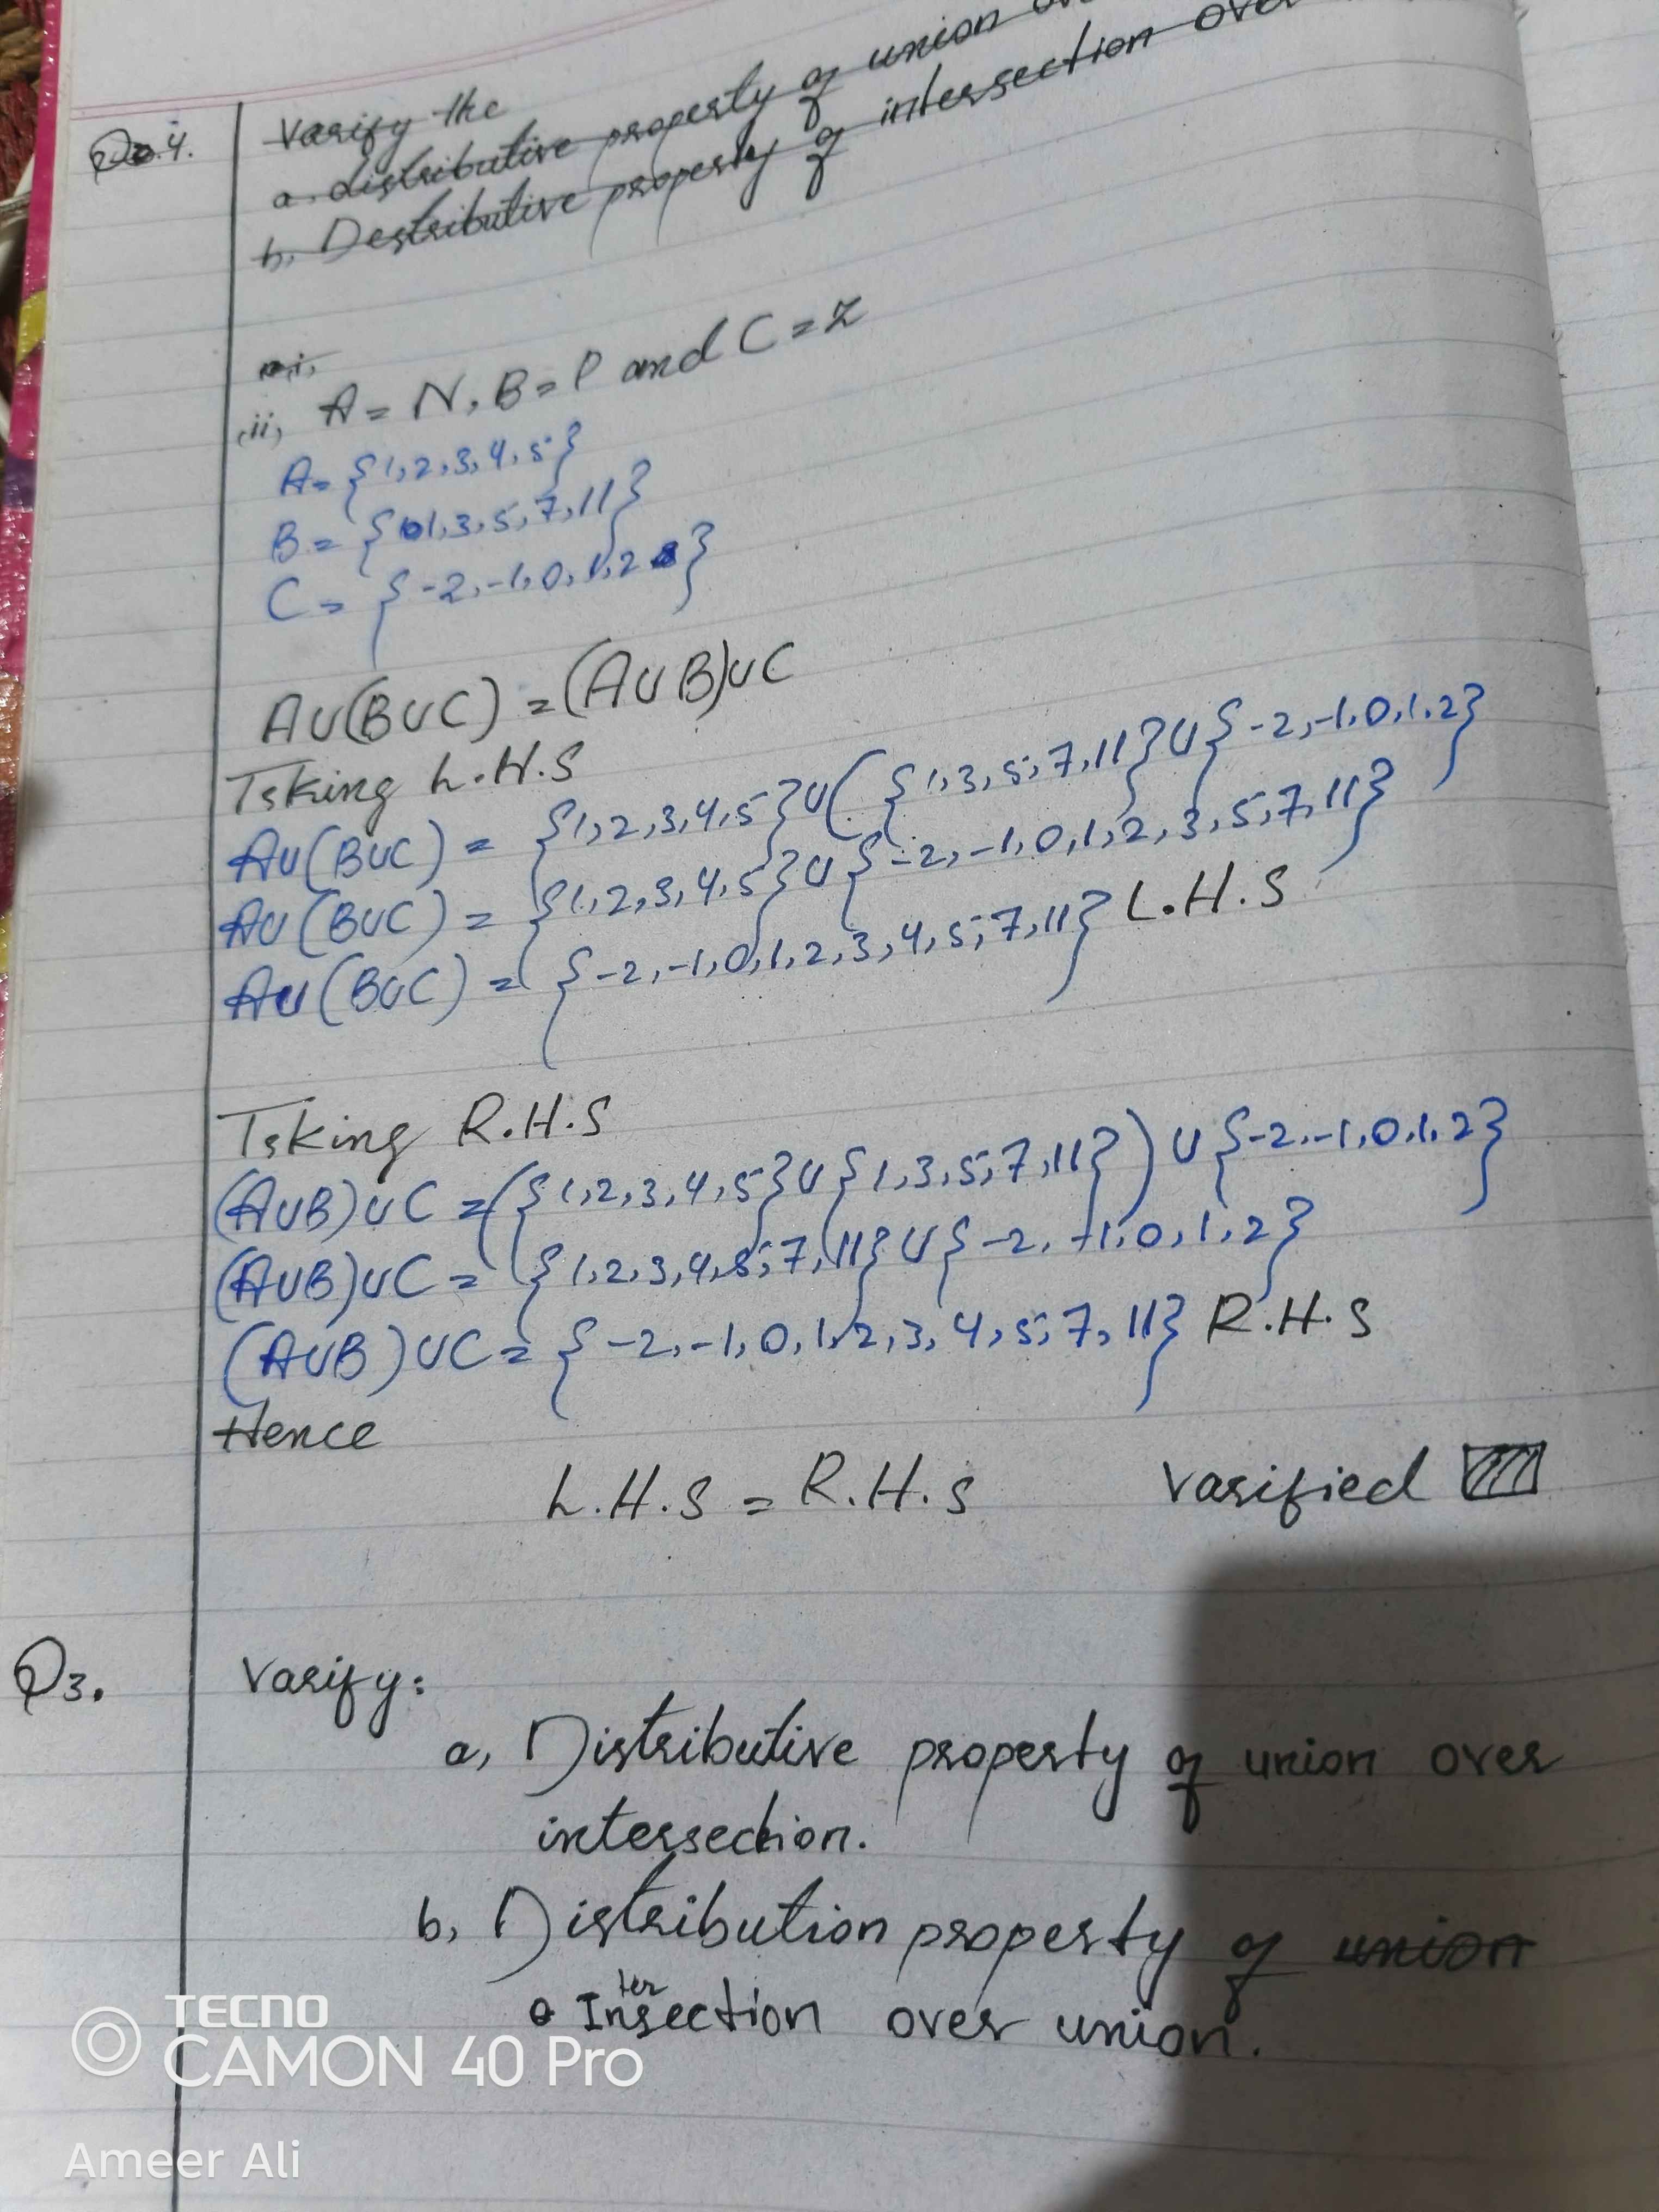 Q.4. Varify the
a. distributive property of union
b. Destributive property of intersection over
ii, A = N, B = P and C = Z
A = {1,2,3,4,5}
B = {1,3,5,7,11}
C = {-2,-1,0,1,2}
AU(BUC) = (AUB)UC
Tsking L.H.S
AU(BUC) = {1,2,3,4,5}U({1,3,5,7,11}U{-2,-1,0,1,2}
AU(BUC) = {1,2,3,4,5}U{-2,-1,0,1,2,3,5,7,11}
AU(BUC) = {-2,-1,0,1,2,3,4,5,7,11} L.H.S
Tsking R.H.S
(AUB)UC = ({1,2,3,4,5}U{1,3,5,7,11})U{-2,-1,0,1,2}
(AUB)UC = {1,2,3,4,5,7,11}U{-2,-1,0,1,2}
(AUB)UC = {-2,-1,0,1,2,3,4,5,7,11} R.H.S
Hence
L.H.S = R.H.S varified
Q3. Varify:
a, Distributive property of union over
intersection.
b, Distribution property of union
Intersection over union.
TECNO
CAMON 40 Pro
Ameer Ali